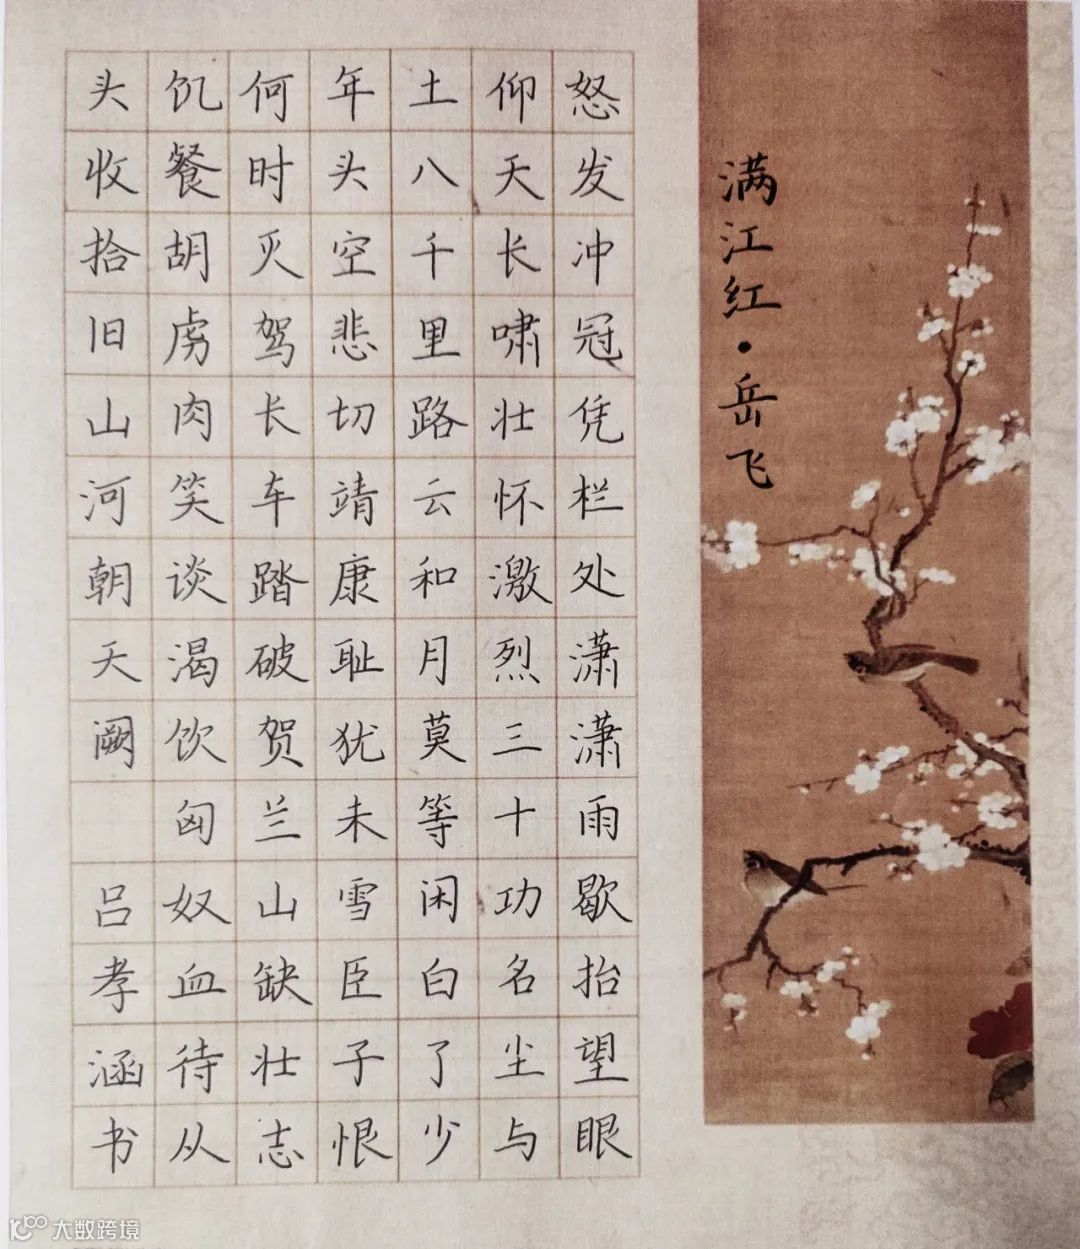 满江红·岳飞
怒发冲冠凭栏处潇潇雨歇抬望眼
仰天长啸壮怀激烈三十功名尘与
土八千里路云和月莫等闲白了少
年头空悲切靖康耻犹未雪臣子恨
何时灭驾长车踏破贺兰山缺壮志
饥餐胡虏肉笑谈渴饮匈奴血待从
头收拾旧山河朝天阙 吕孝涵书
大数跨境